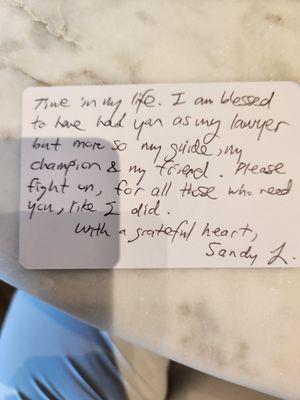 Time in my life. I am blessed
to have had you as my lawyer
but more so my guide, my
champion & my friend. Please
fight on, for all those who need
you, like I did.
With a grateful heart,
Sandy L.